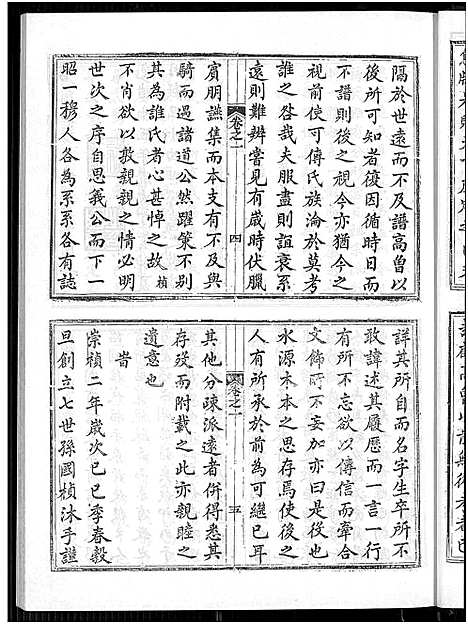 隔於世遠而不及譜高曾以
後所可知者復因循而
不譜則後之視今亦猶今之
視前使可傳氏族淪於莫考
誰之咎哉夫服盡則誼衰系
遠則難辨嘗見有歲時伏臘
卷之一
四
賓朋讌集而本支有不及與
騎而過諸道公然躍策不別
其為誰氏者心甚悼之故楨
不肖欲以敦親親之情必明
世次之序自思義公而下一
昭一穆人各為系系各有誌
詳其所自而名字生卒所不
敢諱述其履歷而一言一行
有所不忘欲以傳信而牽合
文飾所不妄加亦曰是役也
水源木本之思存焉使後之
人有所承於前可繼已耳
卷之一
五
其他分疎派遠者併得悉其
存殁而附載之此亦親睦之
遺意也
旹
崇禎二年歲次己巳季春穀
旦創立七世孫國楨沐手謹